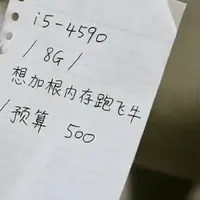 i5-4590
/ 8G /
想加根内存跑飞牛
/ 预算 500